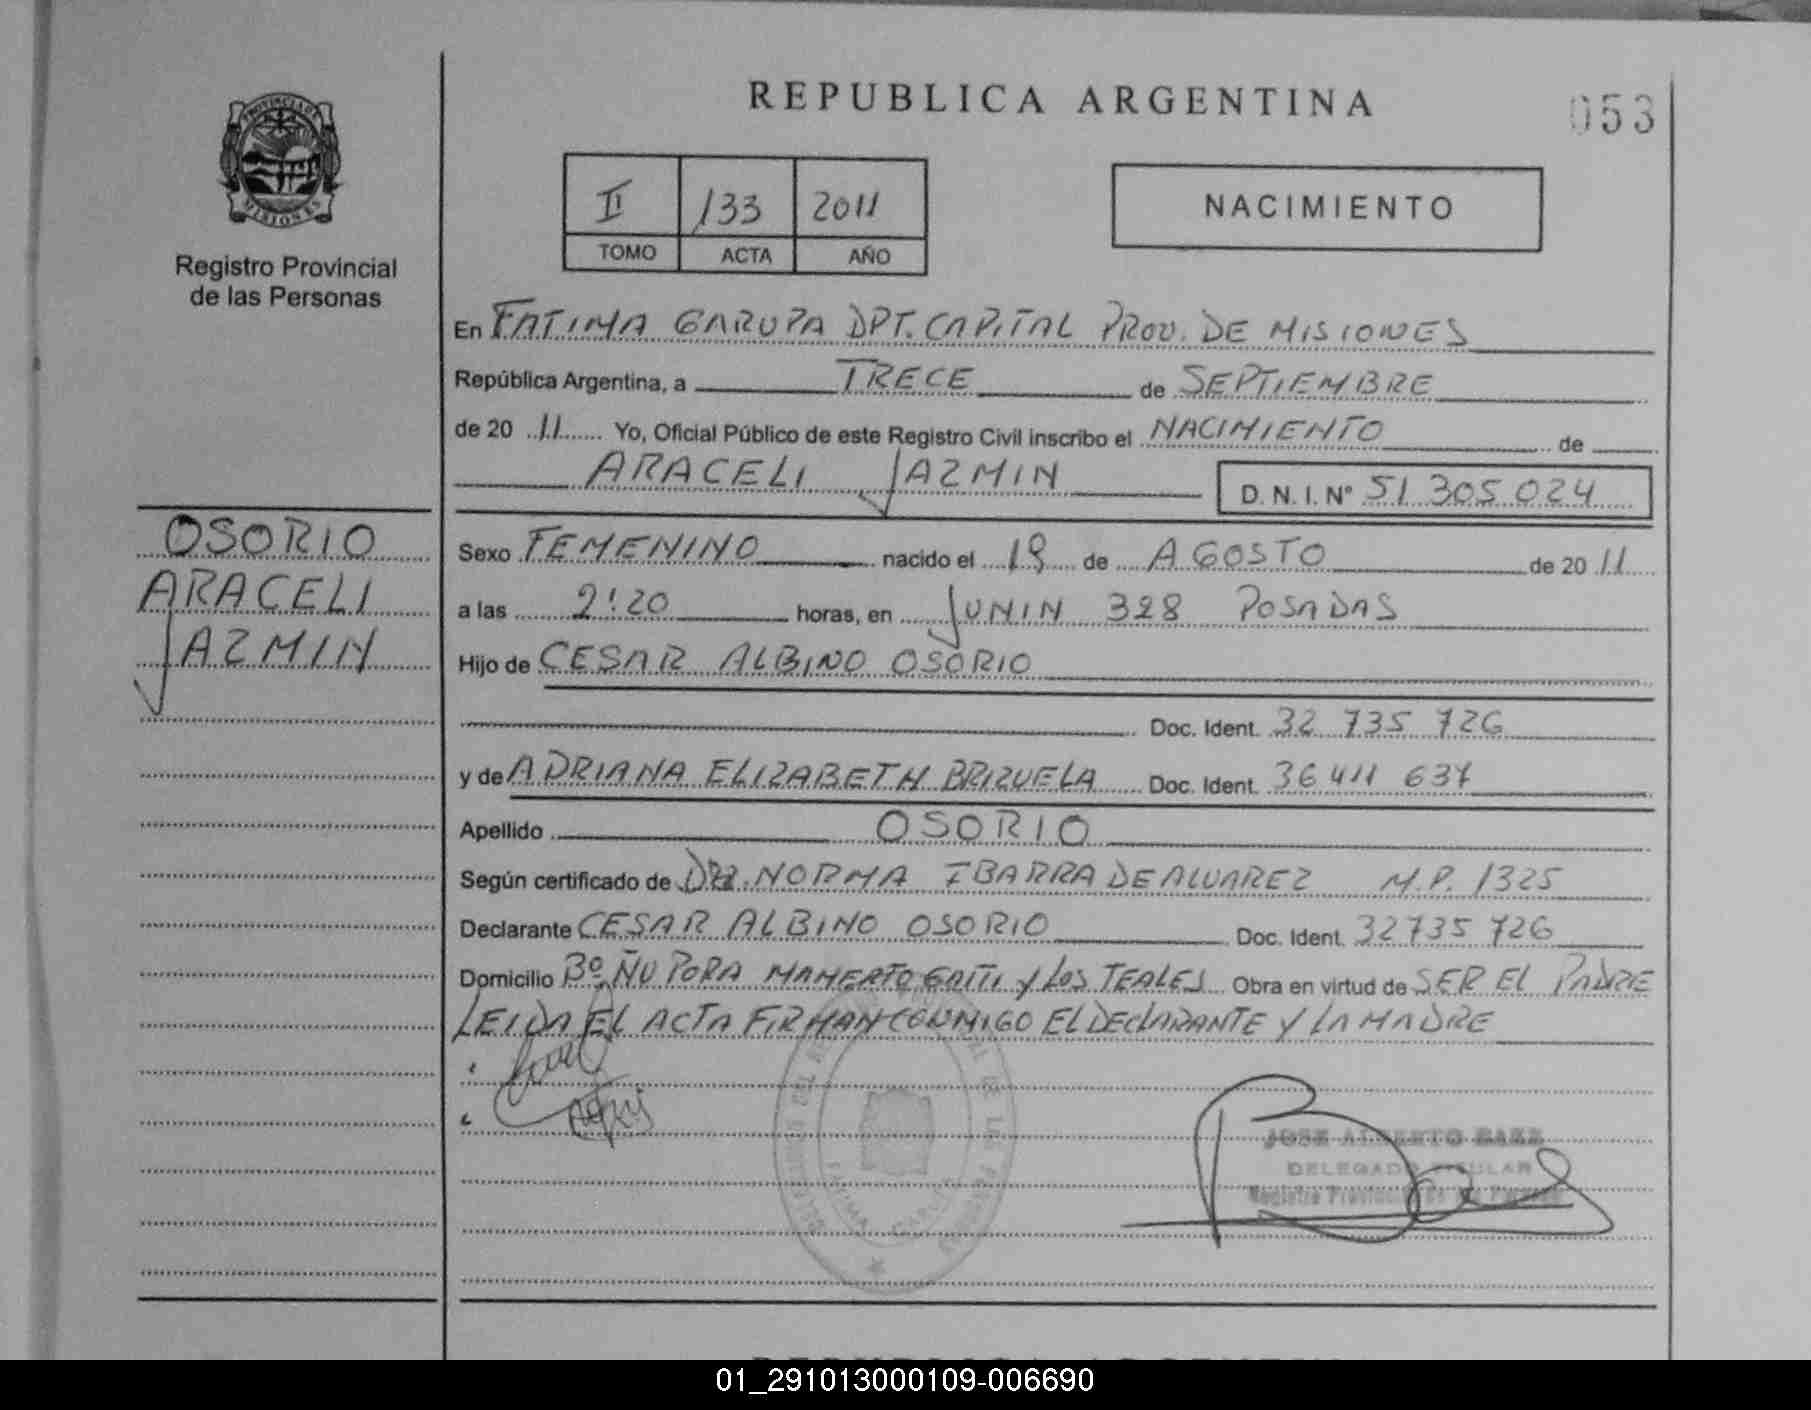 REPUBLICA ARGENTINA
053
PROVINCIA DE
MISIONES
Registro Provincial
de las Personas
II 133 2011
TOMO ACTA AÑO
NACIMIENTO
En FATIMA GARUPA DPT. CAPITAL PROV. DE MISIONES
República Argentina, a TRECE de SEPTIEMBRE
de 20 11 Yo, Oficial Público de este Registro Civil inscribo el NACIMIENTO de
ARACELI JAZMIN D.N.I. Nº 51 305 024
OSORIO
ARACELI
JAZMIN
Sexo FEMENINO nacido el 19 de AGOSTO de 20 11
a las 2:20 horas, en JUNIN 328 POSADAS
Hijo de CESAR ALBINO OSORIO
Doc. Ident. 32 735 726
y de ADRIANA ELIZABETH BRIZUELA Doc. Ident. 36 411 637
Apellido OSORIO
Según certificado de DRA. NORMA IBARRA DE ALVAREZ M.P. 1325
Declarante CESAR ALBINO OSORIO Doc. Ident. 32735 726
Domicilio Bº ÑU PORA MAMERTO GAITI Y LOS TEALES Obra en virtud de SER EL PADRE
LEIDA EL ACTA FIRMAN CONMIGO EL DECLARANTE Y LA MADRE
JOSE ALBERTO BAEZ
DELEGADO TITULAR
Registro Provincial de las Personas
01_291013000109-006690